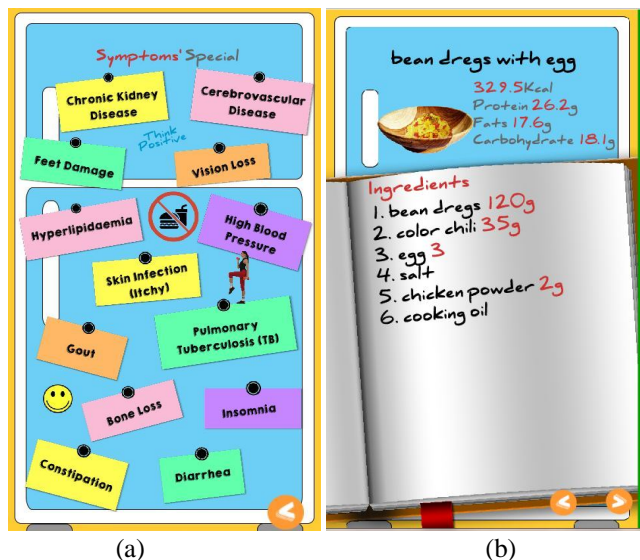 Symptoms' Special
Chronic Kidney
Disease
Cerebrovascular
Disease
Think
Positive
Feet Damage
Vision Loss
Hyperlipidaemia
High Blood
Pressure
Skin Infection
(Itchy)
Pulmonary
Tuberculosis (TB)
Gout
Bone Loss
Insomnia
Constipation
Diarrhea
(a)
bean dregs with egg
329.5Kcal
Protein 26.2g
Fats 17.6g
Carbohydrate 18.1g
Ingredients
1. bean dregs 120g
2. color chili 35g
3. egg 3
4. salt
5. chicken powder 2g
6. cooking oil
(b)